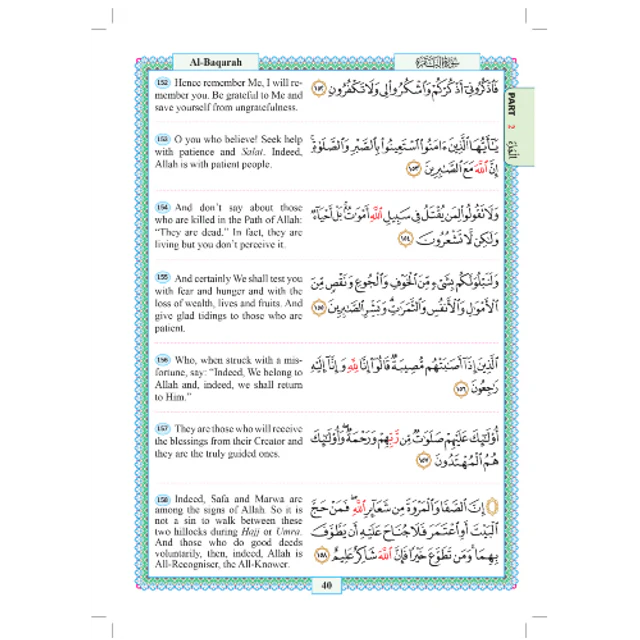 Al-Baqarah
سورة البقرة
PART 2
الجزء
152 Hence remember Me, I will re-
member you. Be grateful to Me and
save yourself from ungratefulness.
فَاذْكُرُونِي أَذْكُرْكُمْ وَاشْكُرُوا لِي وَلَا تَكْفُرُونِ ١٥٢
153 O you who believe! Seek help
with patience and Salat. Indeed,
Allah is with patient people.
يَا أَيُّهَا الَّذِينَ ءَامَنُوا اسْتَعِينُوا بِالصَّبْرِ وَالصَّلَوٰةِ
إِنَّ اللَّهَ مَعَ الصَّٰبِرِينَ ١٥٣
154 And don't say about those
who are killed in the Path of Allah:
“They are dead.” In fact, they are
living but you don't perceive it.
وَلَا تَقُولُوا لِمَن يُقْتَلُ فِي سَبِيلِ اللَّهِ أَمْوَٰتٌ بَلْ أَحْيَاءٌ
وَلَٰكِن لَّا تَشْعُرُونَ ١٥٤
155 And certainly We shall test you
with fear and hunger and with the
loss of wealth, lives and fruits. And
give glad tidings to those who are
patient.
وَلَنَبْلُوَنَّكُم بِشَيْءٍ مِّنَ الْخَوْفِ وَالْجُوعِ وَنَقْصٍ مِّنَ
الْأَمْوَٰلِ وَالْأَنفُسِ وَالثَّمَرَٰتِ وَبَشِّرِ الصَّٰبِرِينَ ١٥٥
156 Who, when struck with a mis-
fortune, say: “Indeed, We belong to
Allah and, indeed, we shall return
to Him.”
الَّذِينَ إِذَا أَصَٰبَتْهُم مُّصِيبَةٌ قَالُوا إِنَّا لِلَّهِ وَإِنَّا إِلَيْهِ
رَٰجِعُونَ ١٥٦
157 They are those who will receive
the blessings from their Creator and
they are the truly guided ones.
أُولَٰئِكَ عَلَيْهِمْ صَلَوَٰتٌ مِّن رَّبِّهِمْ وَرَحْمَةٌ وَأُولَٰئِكَ
هُمُ الْمُهْتَدُونَ ١٥٧
158 Indeed, Safa and Marwa are
among the signs of Allah. So it is
not a sin to walk between these
two hillocks during Hajj or Umra.
And those who do good deeds
voluntarily, then, indeed, Allah is
All-Recogniser, the All-Knower.
إِنَّ الصَّفَا وَالْمَرْوَةَ مِن شَعَائِرِ اللَّهِ فَمَنْ حَجَّ
الْبَيْتَ أَوِ اعْتَمَرَ فَلَا جُنَاحَ عَلَيْهِ أَن يَطَّوَّفَ
بِهِمَا وَمَن تَطَوَّعَ خَيْرًا فَإِنَّ اللَّهَ شَاكِرٌ عَلِيمٌ ١٥٨
40